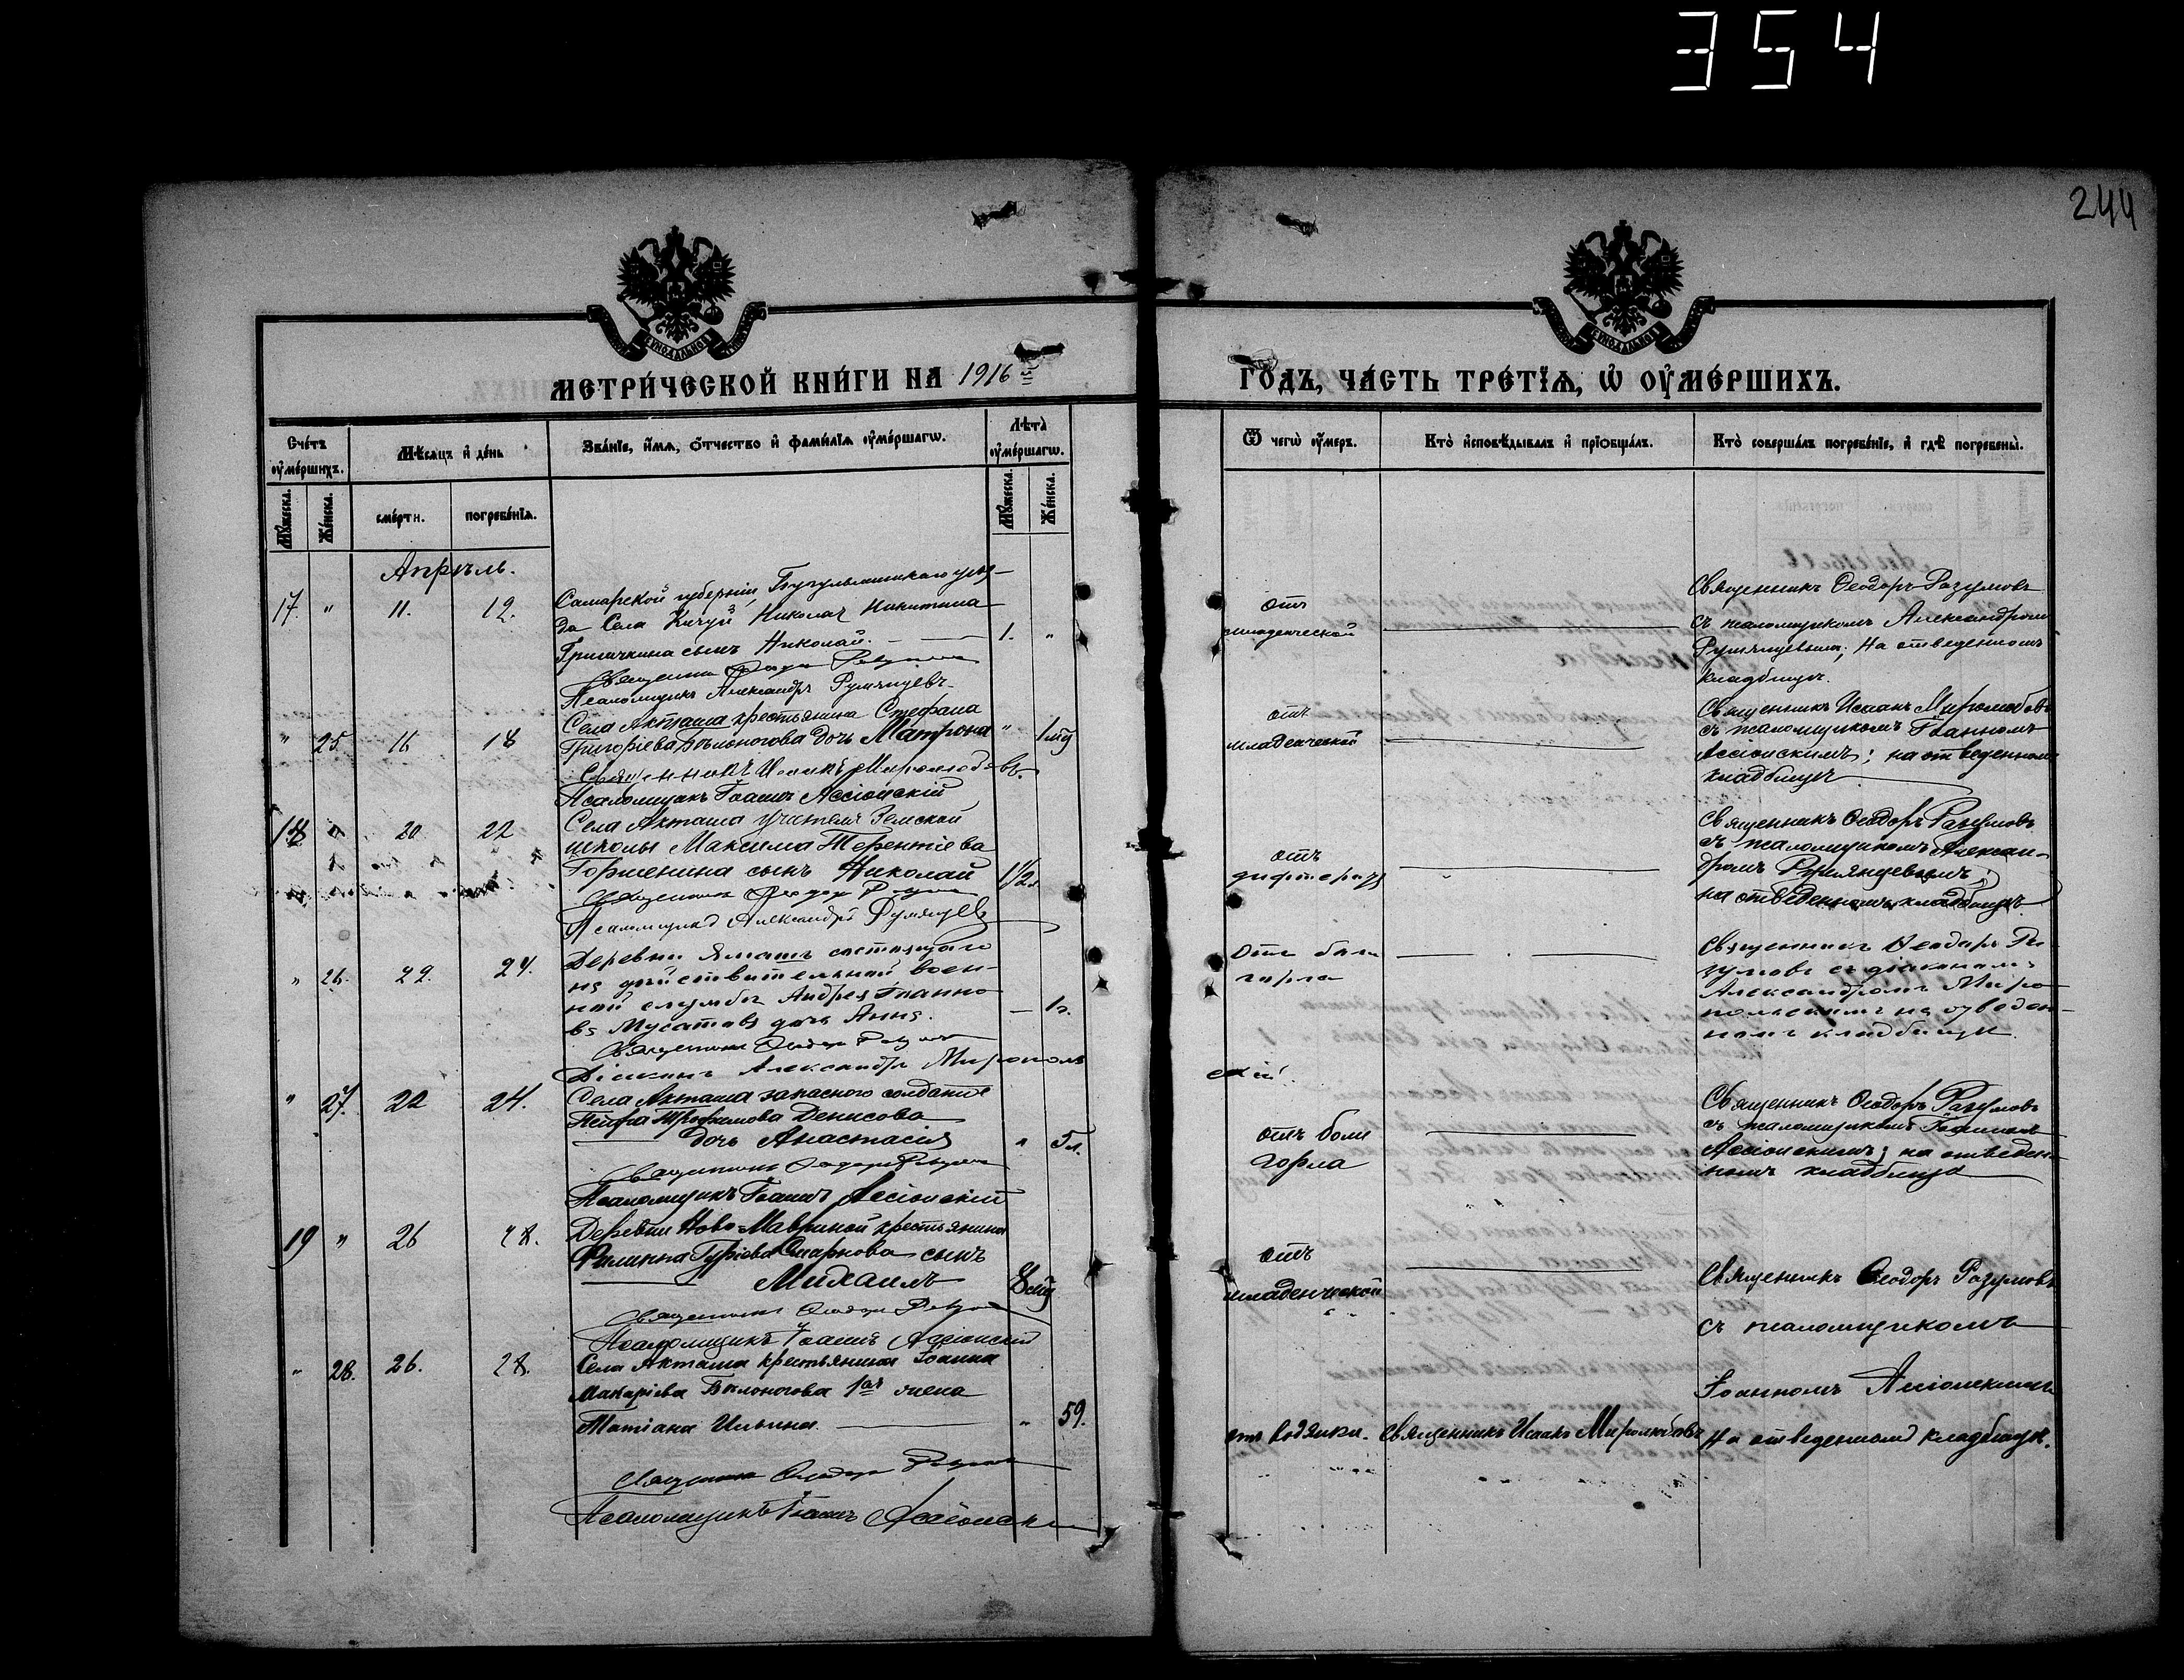 354
244
МЕТРИ́ЧЕСКОЙ КНИ́ГИ НА 1916
ГО́ДЪ, ЧА́СТЬ ТРЕ́ТЇѦ, Ѡ҆ ОУ҆МЕ́РШИХЪ.
Сче́тъ оу҆ме́ршихъ.
Мѣ́сѧцъ и҆ де́нь
Зва́нїе, и҆́мѧ, ѻ҆́тчество и҆ фами́лїѧ оу҆ме́ршагѡ.
Лѣ́та оу҆ме́ршагѡ.
Ѿ чегѡ̀ оу҆́меръ.
Кто̀ и҆сповѣ́дывалъ и҆ прїѡбща́лъ.
Кто̀ соверша́лъ погребе́нїе, и҆ гдѣ̀ погребены̀.
Мꙋ́жеска.
Же́нска.
сме́рти.
погребе́нїѧ.
Мꙋ́жеска.
Же́нска.
Апрѣль.
17. " 11. 12.
Самарской губерніи, Бугульминскаго уѣз-
да Села Кичуй Николая Никитина
сынъ Николай. 1. "
Священникъ
Псаломщикъ Александръ Румянцевъ
отъ
младенческой
Священникъ Ѳеодоръ Разумовъ
съ псаломщикомъ Александромъ
Румянцевымъ; На отведенномъ
кладбищѣ.
" 25. 16 18
Села Акташа крестьянина Стефана
Григоріева Бѣлоногова дочь Матрона "
Священникъ Исаакъ Миролюбовъ.
Псаломщикъ Іоаннъ Ассіонскій
отъ
младенческой
Священникъ Исаакъ Миролюбовъ
съ псаломщикомъ Іоанномъ
Ассіонскимъ; на отведенномъ
кладбищѣ
18 " 20 22
Села Акташа учителя Земской
школы Максима Терентіева
Горшенина сынъ Николай 1½
Священникъ
Псаломщикъ Александръ Румянцевъ
отъ
дифтерита
Священникъ Ѳеодоръ Разумовъ
съ псаломщикомъ Алексан-
дромъ Румянцевымъ;
на отведенномъ кладбищѣ.
" 26. 22. 24.
Деревни состоящаго
на дѣйствительной воен-
ной службѣ Андрея Іоанно-
ва Мусатова дочь Анна.
Священникъ
Діаконъ Александръ Миропольскій.
Отъ боли
горла
Священникъ Ѳеодоръ Ра-
зумовъ съ діакономъ
Александромъ Миро-
польскимъ на отведен-
номъ кладбищѣ.
" 27. 22 24.
Села Акташа запаснаго солдата
Трофимова Денисова
дочь Анастасія " 5 л.
Священникъ
Псаломщикъ Іоаннъ Ассіонскій
отъ боли
горла
Священникъ Ѳеодоръ Разумовъ
съ псаломщикомъ Іоанномъ
Ассіонскимъ; на отведен-
номъ кладбищѣ
19 " 26 28.
Деревни Ново-Мавриной крестьянина
Филиппа Гуріева Смарнова сынъ
Михаилъ
Священникъ
Псаломщикъ Іоаннъ Ассіонскій
отъ
младенческой
Священникъ Ѳеодоръ Разумовъ
съ псаломщикомъ
" 28. 26. 28.
Села Акташа крестьянина Іоанна
Макаріева Бѣлоногова 1ая жена
Татіана Ильина. " 59.
Священникъ
Псаломщикъ Іоаннъ Ассіонскій
отъ водянки. Священникъ Исаакъ Миролюбовъ
Іоанномъ Ассіонскимъ
На отведенномъ кладбищѣ.